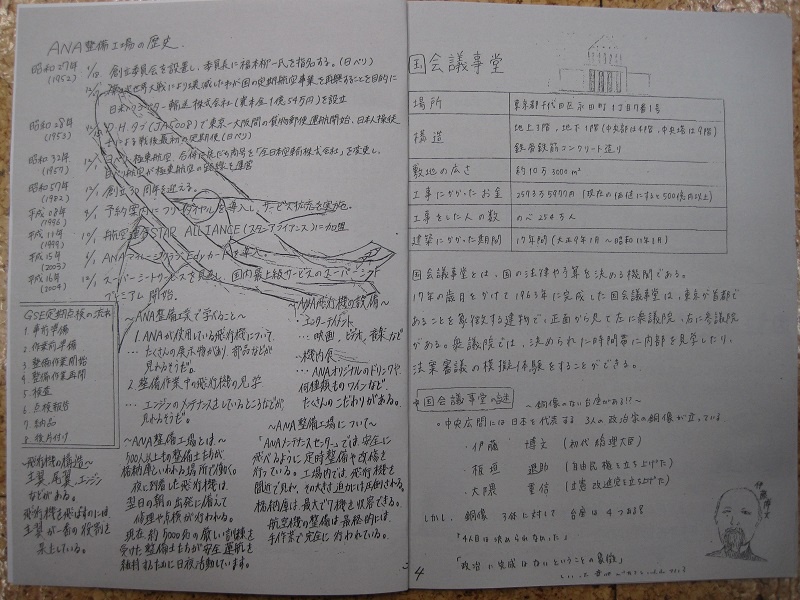 ANA整備工場の歴史
昭和27年
(1952)
創立委員会を設置し、委員長に
(日ペリ)
により
わが国の定期航空事業を再興することを目的に
日本ヘリコプター輸送株式会社(資本金1億5千万)を設立
昭和28年
(1953)
(JA5008)で東京ー大阪間の貨物郵便運航開始、日本人操縦
士による戦後最初の定期便(日ペリ)
昭和32年
(1957)
極東航空
「全日本空輸株式会社」に変更し、
極東航空の路線を運営
昭和57年
(1982)
創立30周年を迎える。
平成08年
(1996)
予約案内にフリーダイヤルを導入し、サービス拡充を
平成11年
(1999)
航空連合STAR ALLIANCE(スターアライアンス)に加盟
平成15年
(2003)
ANAマイレージクラブ Edyカードを導入。
平成16年
(2004)
スーパーシートサービスを見直し、国内最上級サービスのスーパーシート
プレミアム 開始。
GSE定期点検の流れ
1 事前準備
2 作業前準備
3 整備作業開始
4 整備作業再開
5 検査
6 点検報告
7 納品
8 後片付け
~飛行機の構造~
主翼、尾翼、エンジン
などがある。
飛行機を飛ばすのには、
主翼が一番の役割を
果たしている。
~ANA整備工場で学べること~
1. ANAが使用している飛行機について
… たくさんの展示物があり、部品などが
見れるそうだ。
2. 整備作業中の飛行機の見学
… エンジンのメンテナンスをしているところなどが、
見れるそうだ。
~ANA飛行機の設備~
・エンターテイメント
… 映画、ビデオ、音楽など
・機内食
… ANAオリジナルのドリンクや
何種類ものワインなど、
たくさんのこだわりがある。
~ANA整備工場とは~
500人以上の整備士たちが
格納庫といわれる場所で働く。
夜に到着した飛行機は、
翌日の朝の出発に備えて
修理や点検が行われる。
現在約5000名の厳しい訓練を
受けた整備士たちが安全運航を
維持するために日夜活動しています。
~ANA整備工場について~
「ANAメンテナンスセンター」では、安全に
飛べるように定時整備や改修を
行っている。工場内では、飛行機を
間近で見れ、その大きさ迫力には圧倒される。
格納庫は、最大で7機を収容できる。
航空機の整備は最終的には、
手作業で安全に行われている。
国会議事堂
場所 東京都千代田区永田町1丁目7番1号
構造 地上3階、地下1階(中央部は4階、中央塔は9階)
鉄骨鉄筋コンクリート造り
敷地の広さ 約10万3000m²
工事にかかったお金 2573万5977円(現在の価値にすると500億円以上)
工事をした人の数 のべ254万人
建築にかかった期間 17年間(大正9年1月~昭和11年11月)
国会議事堂とは、国の法律や予算を決める機関である。
17年の歳月をかけて1963年に完成した国会議事堂は、東京が首都で
あることを象徴する建物で、正面から見て左に衆議院、右に参議院
がある。衆議院では、決められた時間帯に内部を見学したり、
法案審議の模擬体験をすることができる。
*国会議事堂の謎
~銅像のない台座がある!?~
・中央広間には日本を代表する3人の政治家の銅像が立っている
・伊藤 博文 (初代総理大臣)
・板垣 退助 (自由民権を立ち上げた)
・大隈 重信 (立憲改進党を立ち上げた)
しかし、銅像 3体に対して 台座は 4つある。
「4人目は決められなかった」
「政治に完成はないということの象徴」
伊藤博文
4